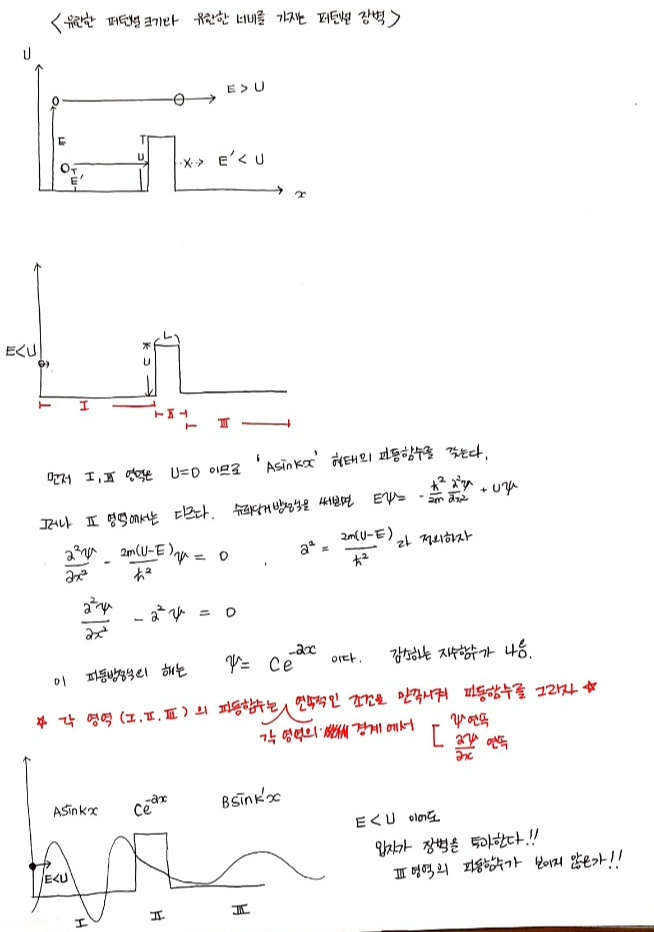 <유한한 퍼텐셜 크기와 유한한 너비를 가지는 퍼텐셜 장벽>
U
E > U
E
T
U
E'
-x-> E' < U
x
L
E<U
U
I
II
III
먼저 I, III 영역은 U=0 이므로 'Asinkx' 형태의 파동함수를 갖는다.
그러나 II 영역에서는 다르다. 슈뢰딩거방정식을 써보면 Eψ = -ℏ²/2m ∂²ψ/∂x² + Uψ
∂²ψ/∂x² - 2m(U-E)/ℏ² ψ = 0 , a² = 2m(U-E)/ℏ² 라 정의하자
∂²ψ/∂x² - a²ψ = 0
이 파동방정식의 해는 ψ = Ce^-ax 이다. 감소하는 지수함수가 나옴.
☆ 각 영역 (I.II.III) 의 파동함수는 연속적인 조건을 만족시켜 파동함수를 그리자 ☆
각 영역의 경계에서 [ ψ 연속
∂ψ/∂x 연속
Asinkx Ce^-ax Bsink'x
E<U
I
II
III
E<U 이어도
입자가 장벽을 투과한다!!
III 영역의 파동함수가 보이지 않은가!!